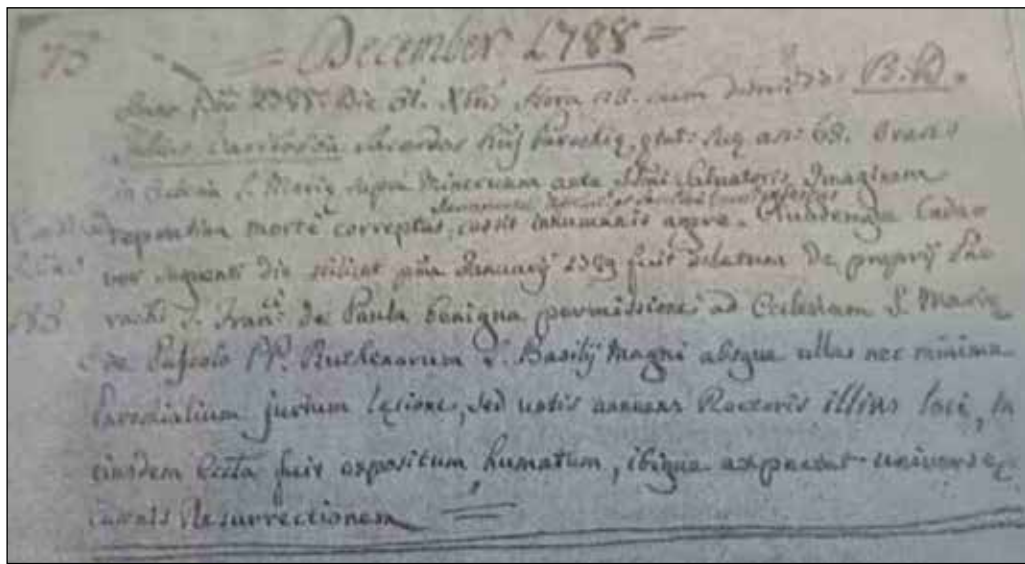 75 = December 1788 =
Anno Dni 1788. Die 31. Xbris Hora 18. cum B. D.
Julius Sacerdos huj Parochię, ętat: suę an: 68. Orans
in Ecclesia S. Marię supra Minervam ante SSmi Salvatoris Imaginem
Sacramentis
repentina morte correptus, cessit inhumanis agere. Cada-
ver sequenti die scilicet pma Januarij 1789 fuit delatum de proprij Pa-
183 rochi S. Franci de Paula benigna permissione ad Ecclesiam S. Marię
de Pascolo PP. Ruthenorum S. Basilij Magni absque ulla nec minima
Parochialium jurium lęsione, sed votis annuens Rectoris illius loci, in
eiusdem Eccla fuit expositum, humatum, ibique expectat universę
carnis Resurrectionem